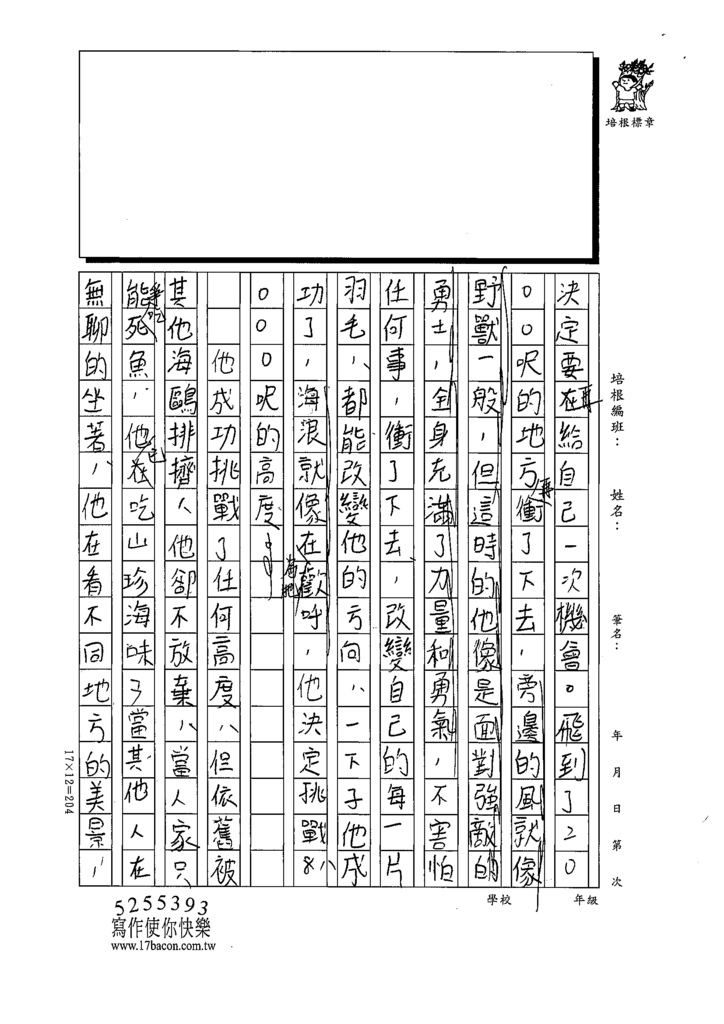 培根標章
培根編班：　姓名：　筆名：　年　月　日　第　次
決定要在再給自己一次機會。飛到了20
00呎的地方再衝了下去，旁邊的風就像
野獸一般，但這時的他像是面對強敵的
勇士，全身充滿了力量和勇氣，不害怕
任何事，衝了下去，改變自己的每一片
羽毛，都能改變他的方向，一下子他成
功了，海浪就像在為他歡呼，他決定挑戰8，
000呎的高度。
他成功挑戰了任何高度，但依舊被
其他海鷗排擠，他卻不放棄，當人家只
能拿吃死魚，他已在吃山珍海味了當其他人在
無聊的坐著，他在看不同地方的美景，
17×12=204
學校　年級
5255393
寫作使你快樂
www.17bacon.com.tw